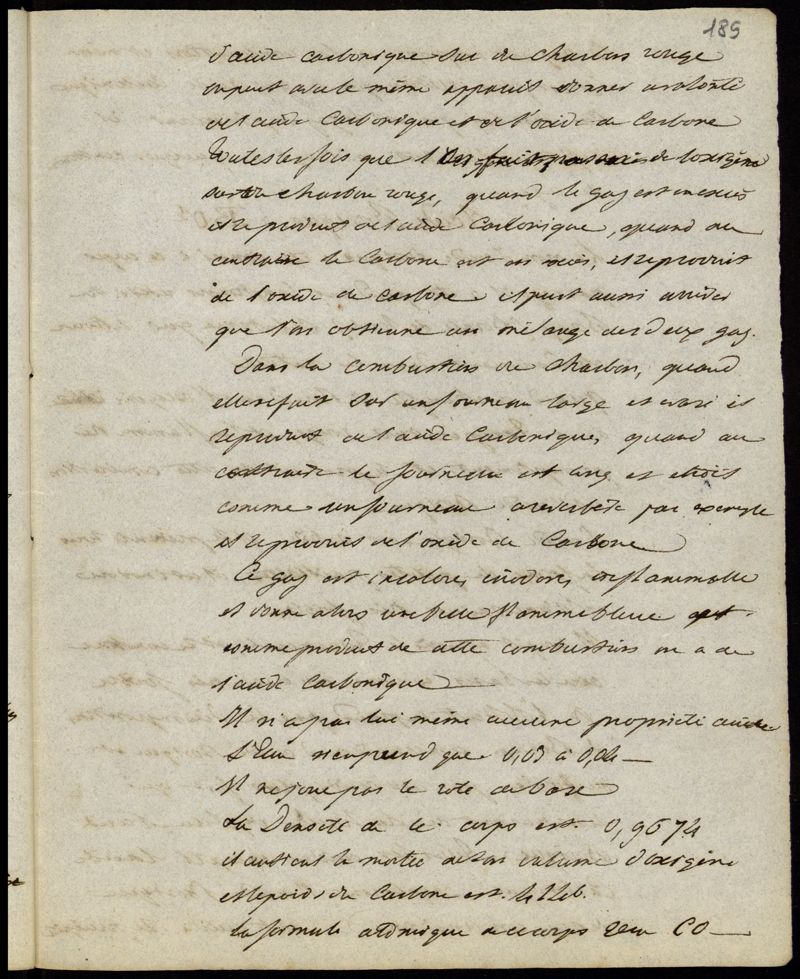 189
d'acide carbonique sur du charbon rouge
on peut avec le même appareil donner a volonté
de l'acide Carbonique et de l'oxide de Carbone
toutes les fois que l' de l'oxigène
sur du charbon rouge, quand le gaz est en excès
il se produit de l'acide Carbonique, quand au
contraire le Carbone est en excès, il se produit
de l'oxide de carbone il peut aussi arriver
que l'on obtienne un mélange des deux gaz.
Dans la combustion du charbon, quand
elle se fait sur un fourneau large et evasé il
se produit de l'acide Carbonique, quand au
contraire le fourneau est long et etroit
comme un fourneau a reverbère par exemple
il se produit de l'oxide de Carbone
Ce gaz est incolore, inodore, inflammable
et donne alors une belle flamme bleue
comme produit de cette combustion on a de
l'acide Carbonique
Il n'a pas lui même aucune propriété acide
L'Eau n'en prend que 0,03 à 0,04
Il ne joue pas le role de base
La Densité de ce corps est. 0,9674
il contient la moitié de son volume d'oxigène
et le poids du Carbone est.
la formule atomique de ce corps sera CO